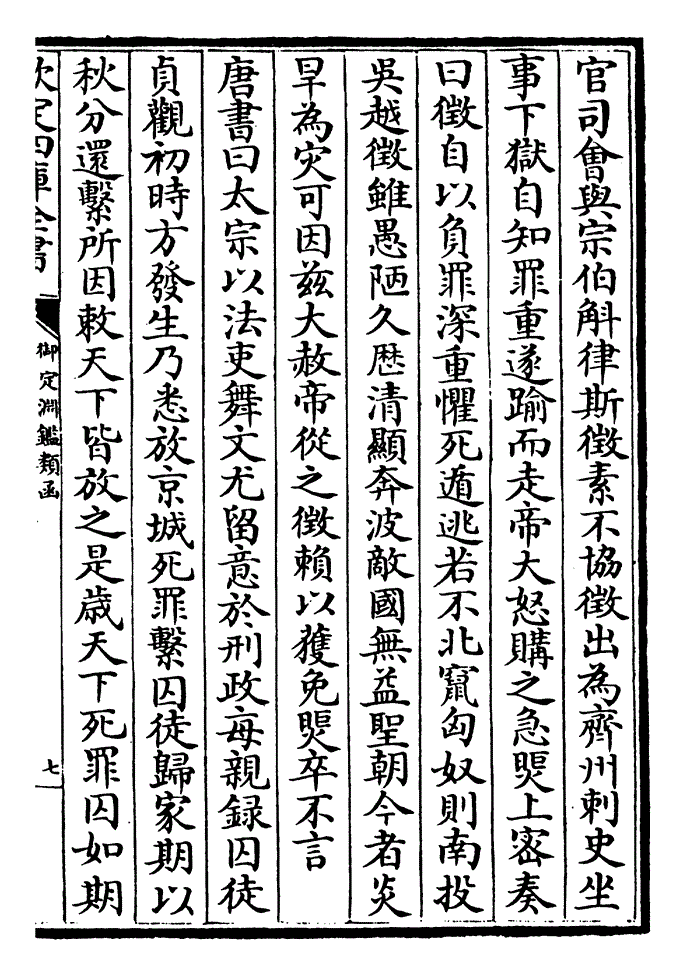 官司會與宗伯斛律斯徵素不協徵出為齊州刺史坐
事下獄自知罪重遂踰而走帝大怒購之急煚上密奏
曰徵自以負罪深重懼死遁逃若不北竄匈奴則南投
吳越徵雖愚陋久厯清顯奔波敵國無益聖朝今者炎
旱為灾可因兹大赦帝從之徵賴以獲免煚卒不言
唐書曰太宗以法吏舞文尤留意於刑政每親録囚徒
貞觀初時方發生乃悉放京城死罪繫囚徒歸家期以
秋分還繫所因敕天下皆放之是歳天下死罪囚如期
欽定四庫全書
御定淵鑑類函
七